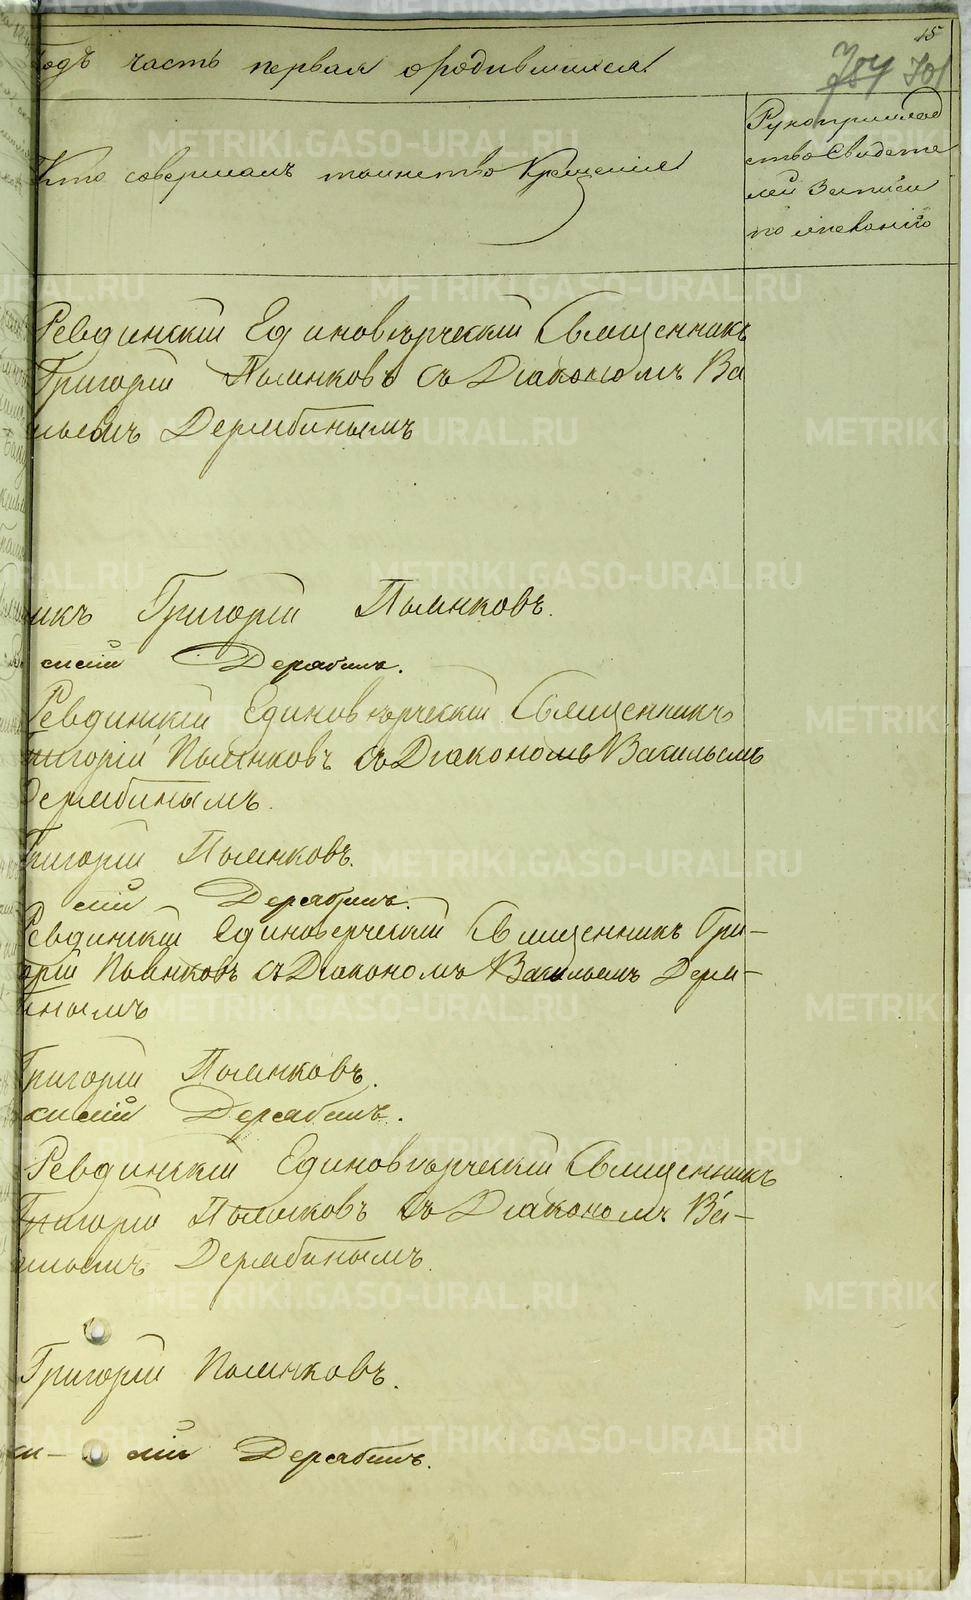 15
704 701
Годъ часть первая о родившихся
Кто совершалъ таинство Крещенія
Рукоприклад
ство Свидете
лей Записи
по желанію
Ревдинскій Единовѣрческій Священникъ
Григорій Пьянковъ съ Діакономъ Ва
ильемъ Дерябинымъ
икъ Григорій Пьянковъ.
силій Дерябинъ.
Ревдинскій Единовѣрческій Священникъ
Григорій Пьянковъ съ Діакономъ Васильемъ
Дерябинымъ.
Григорій Пьянковъ.
силій Дерябинъ.
Ревдинскій Единоверческій Священникъ Гри-
горій Пьянковъ съ Діакономъ Васильемъ Деря-
бинымъ
Григорій Пьянковъ.
силій Дерябинъ.
Ревдинскій Единовѣрческій Священникъ
Григорій Пьянковъ съ Діакономъ Ва-
ильемъ Дерябинымъ.
Григорій Пьянковъ.
си- лій Дерябинъ.
METRIKI.GASO-URAL.RU